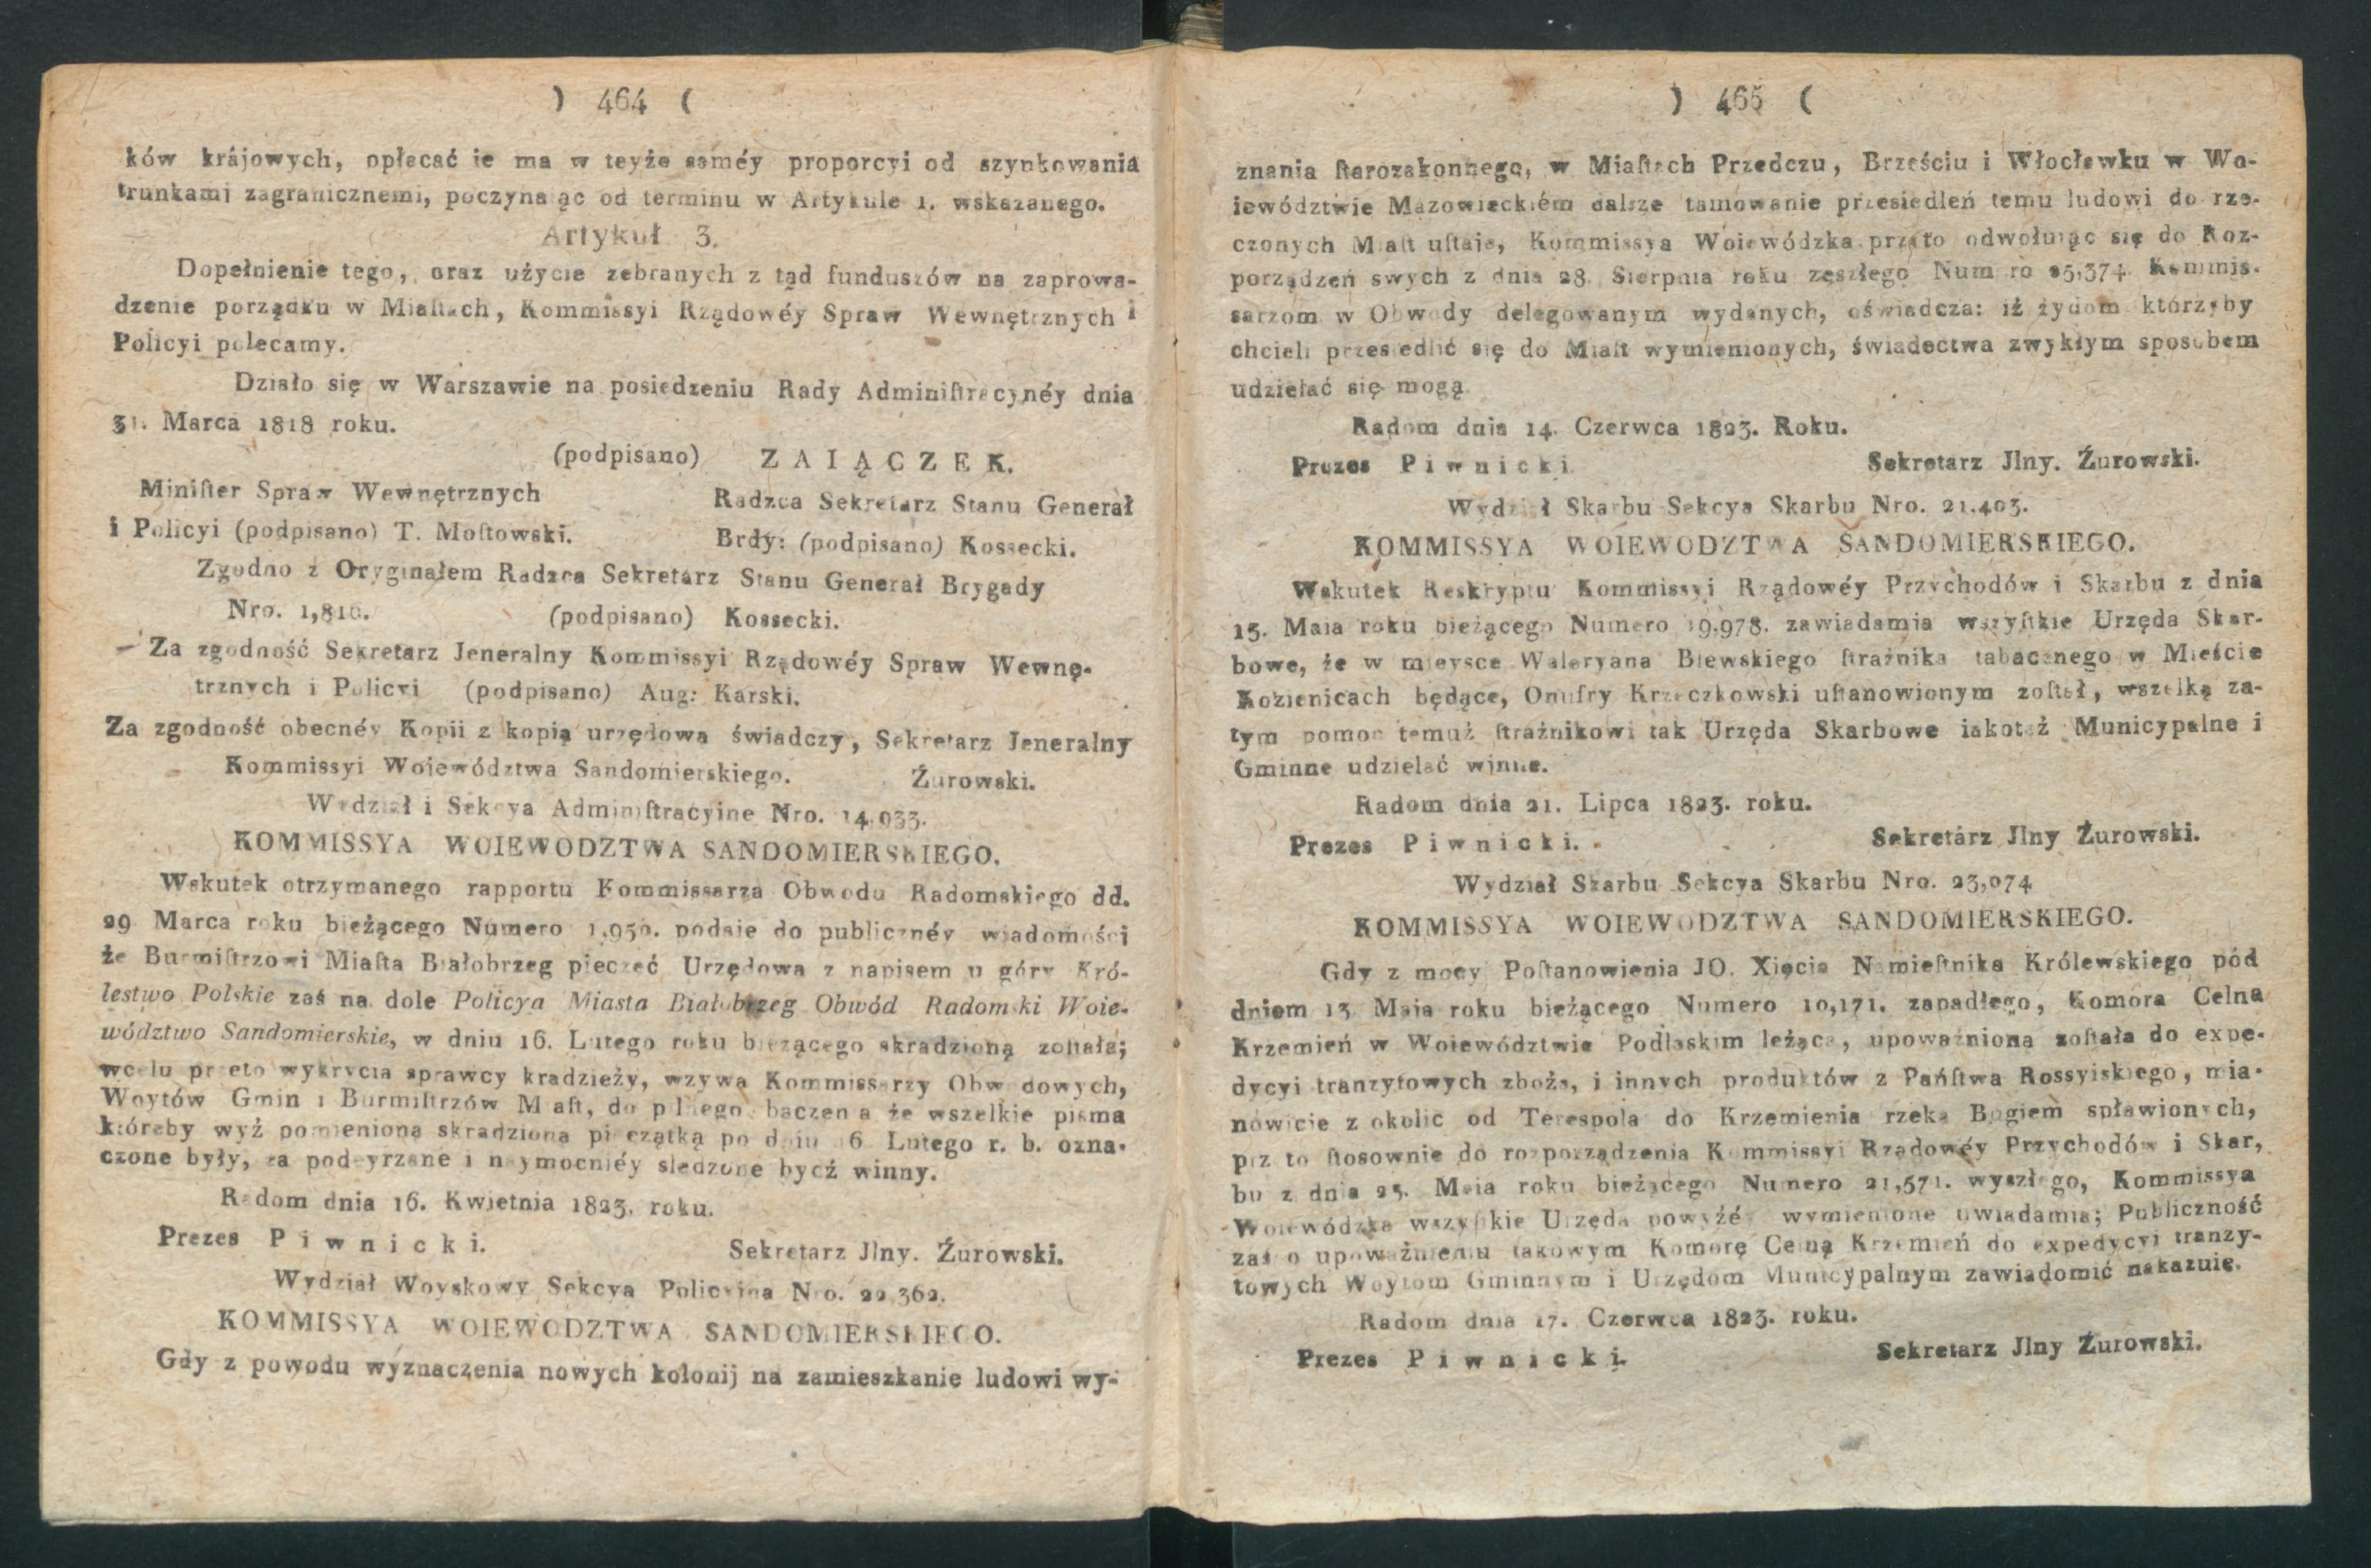 ) 464 (
ków krájowych, opłacać ie ma w teyże saméy proporcyi od szynkowania
trunkami zagranicznemi, poczynaiąc od terminu w Artykule 1. wskazanego.
Artykuł 3.
Dopełnienie tego, oraz użycie zebranych z tąd funduszów na zaprowa-
dzenie porządku w Miaſtach, Kommissyi Rządowéy Spraw Wewnętrznych i
Policyi polecamy.
Działo się w Warszawie na posiedzeniu Rady Adminiſtracynéy dnia
31. Marca 1818 roku.
(podpisano) ZAIĄCZEK.
Miniſter Spraw Wewnętrznych
i Policyi (podpisano) T. Moſtowski.
Radzca Sekretarz Stanu Generał
Brdy: (podpisano) Kossecki.
Zgodno z Oryginałem Radzca Sekretarz Stanu Generał Brygady
Nro. 1,810. (podpisano) Kossecki.
Za zgodność Sekretarz Jeneralny Kommissyi Rządowéy Spraw Wewnę-
trznych i Policyi (podpisano) Aug: Karski.
Za zgodność obecnéy Kopii z kopią urzędowa świadczy, Sekretarz Jeneralny
Kommissyi Woiewództwa Sandomierskiego. Żurowski.
Wydział i Sekcya Adminiſtracyine Nro. 14,033.
KOMMISSYA WOIEWODZTWA SANDOMIERSKIEGO.
Wskutek otrzymanego rapportu Kommissarza Obwodu Radomskiego dd.
29 Marca roku bieżącego Numero 1,950. podaie do publicznéy wiadomości
że Burmiſtrzowi Miaſta Białobrzeg pieczęć Urzędowa z napisem u góry Kró-
lestwo Polskie zaś na dole Policya Miasta Białobrzeg Obwód Radomski Woie-
wództwo Sandomierskie, w dniu 16. Lutego roku bieżącego skradzioną zoſtała;
wcelu przeto wykrycia sprawcy kradzieży, wzywa Kommissarzy Obwodowych,
Woytów Gmin i Burmiſtrzów Miaſt, do pilnego baczenia że wszelkie pisma
któreby wyż pomieniona skradzioną pieczątką po dniu 16 Lutego r. b. ozna-
czone były, za podeyrzane i naymocniéy śledzone bydź winny.
Radom dnia 16. Kwietnia 1823. roku.
Prezes Piwnicki. Sekretarz Jlny. Żurowski.
Wydział Woyskowy Sekcya Policyina Nro. 22,362.
KOMMISSYA WOIEWODZTWA SANDOMIERSKIEGO.
Gdy z powodu wyznaczenia nowych kolonij na zamieszkanie ludowi wy-
) 465 (
znania ſtarozakonnego, w Miaſtach Przedczu, Brześciu i Włocławku w Wo-
iewództwie Mazowieckiém dalsze tamowanie przesiedleń temu ludowi do rze-
czonych Miaſt uſtaie, Kommissya Woiewódzka przeto odwołuiąc się do Roz-
porządzeń swych z dnia 28. Sierpnia roku zeszłego Numero 25,374. Kommis-
sarzom w Obwody delegowanym wydanych, oświadcza: iż żydom którzyby
chcieli przesiedlić się do Miaſt wymienionych, świadectwa zwykłym sposobem
udzielać się mogą.
Radom dnia 14. Czerwca 1823. Roku.
Prezes Piwnicki. Sekretarz Jlny. Żurowski.
Wydział Skarbu Sekcya Skarbu Nro. 21.403.
KOMMISSYA WOIEWODZTWA SANDOMIERSKIEGO.
Wskutek Reskryptu Kommissyi Rządowéy Przychodów i Skarbu z dnia
15. Maia roku bieżącego Numero 19,978. zawiadamia wszyſtkie Urzęda Skar-
bowe, że w mieysce Waleryana Blewskiego ſtrażnika tabacznego w Mieście
Kozienicach będące, Onufry Krzeczkowski uſtanowionym zoſtał, wszelką za-
tym pomoc temuż ſtrażnikowi tak Urzęda Skarbowe iakoteż Municypalne i
Gminne udzielać winne.
Radom dnia 21. Lipca 1823. roku.
Prezes Piwnicki. Sekretárz Jlny Żurowski.
Wydział Skarbu Sekcya Skarbu Nro. 23,074
KOMMISSYA WOIEWODZTWA SANDOMIERSKIEGO.
Gdy z mocy Poſtanowienia JO. Xięcia Namieſtnika Królewskiego pód
dniem 13 Maia roku bieżącego Numero 10,171. zapadłego, Komora Celna
Krzemień w Woiewództwie Podlaskim leżąca, upoważniona zoſtała do expe-
dycyi tranzytowych zboża, i innych produktów z Pańſtwa Rossyiskiego, mia-
nowicie z okolic od Terespola do Krzemienia rzeką Bugiem spławionych,
przeto ſtosownie do rozporządzenia Kommissyi Rządowéy Przychodów i Skar,
bu z dnia 25. Maia roku bieżącego Numero 21,571. wyszłego, Kommissya
Woiewódzka wszyſtkie Urzęda powyżéy wymienione uwiadamia; Publiczność
zaś o upoważnieniu takowym Komorę Celną Krzemień do expedycyi tranzy-
towych Woytom Gminnym i Urzędom Municypalnym zawiadomić nakazuie.
Radom dnia 17. Czerwca 1823. roku.
Prezes Piwnicki. Sekretarz Jlny Żurowski.